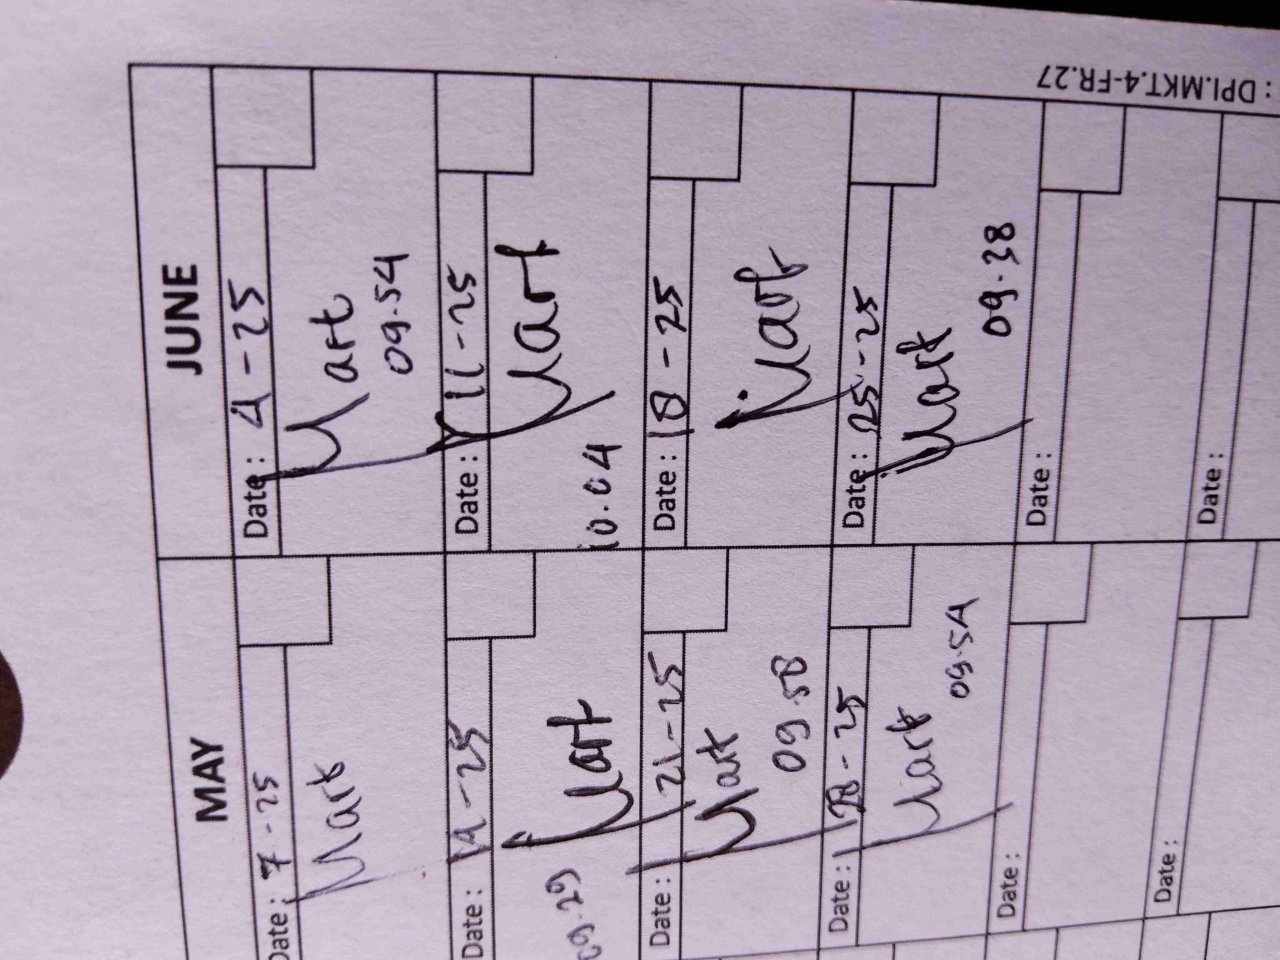 : DPI.MKT.4-FR.27
MAY
JUNE
Date : 7-25
Mark
Date : 4-25
Mark
09.54
Date : 14-25
Mark
09.29
Date : 11-25
Mark
10.04
Date : 21-25
Mark
09.58
Date : 18-25
Mark
Date : 28-25
Mark
09.54
Date : 25-25
Mark
09.38
Date :
Date :
Date :
Date :